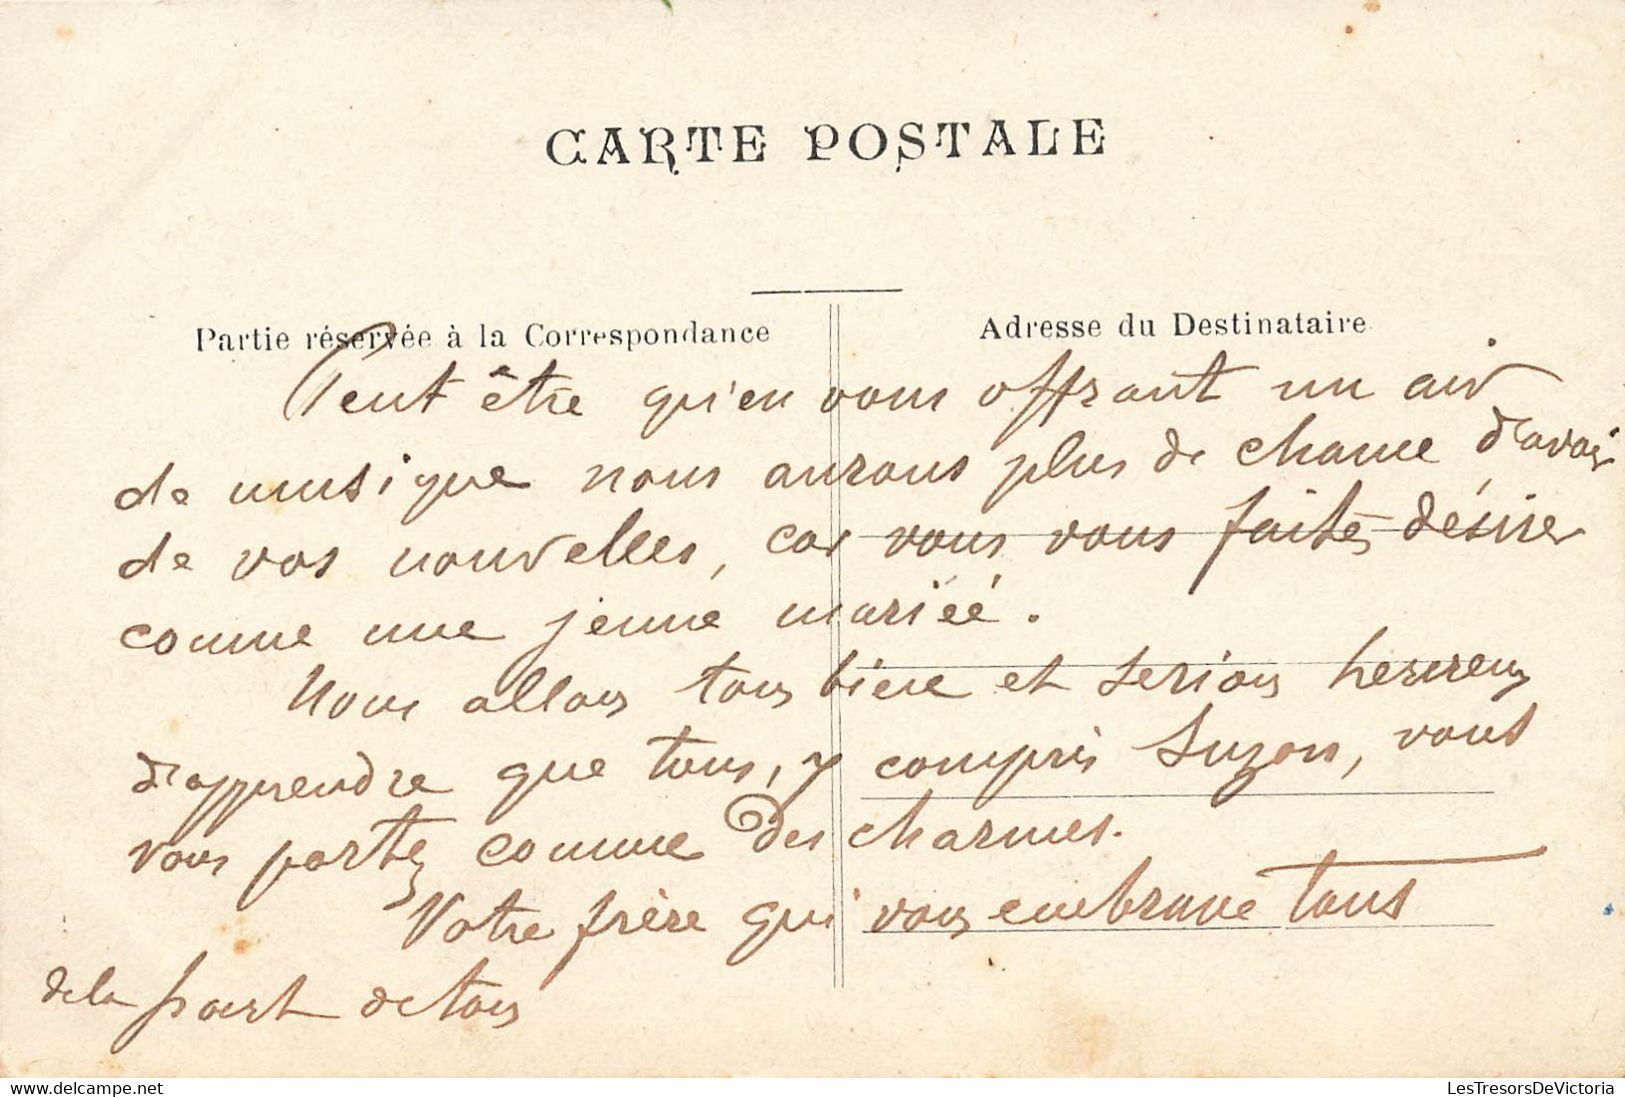 CARTE POSTALE
Partie réservée à la Correspondance
Adresse du Destinataire
Peut être qu'en vous offrant un air
de musique nous aurons plus de chance d'avoir
de vos nouvelles, car vous vous faites désirer
comme une jeune mariée.
Nous allons tous bien et serions heureux
d'apprendre que tous, y compris Suzon, vous
vous portez comme des charmes.
Votre frère qui vous embrasse tous
de la part de tous
delcampe.net
LesTresorsDeVictoria